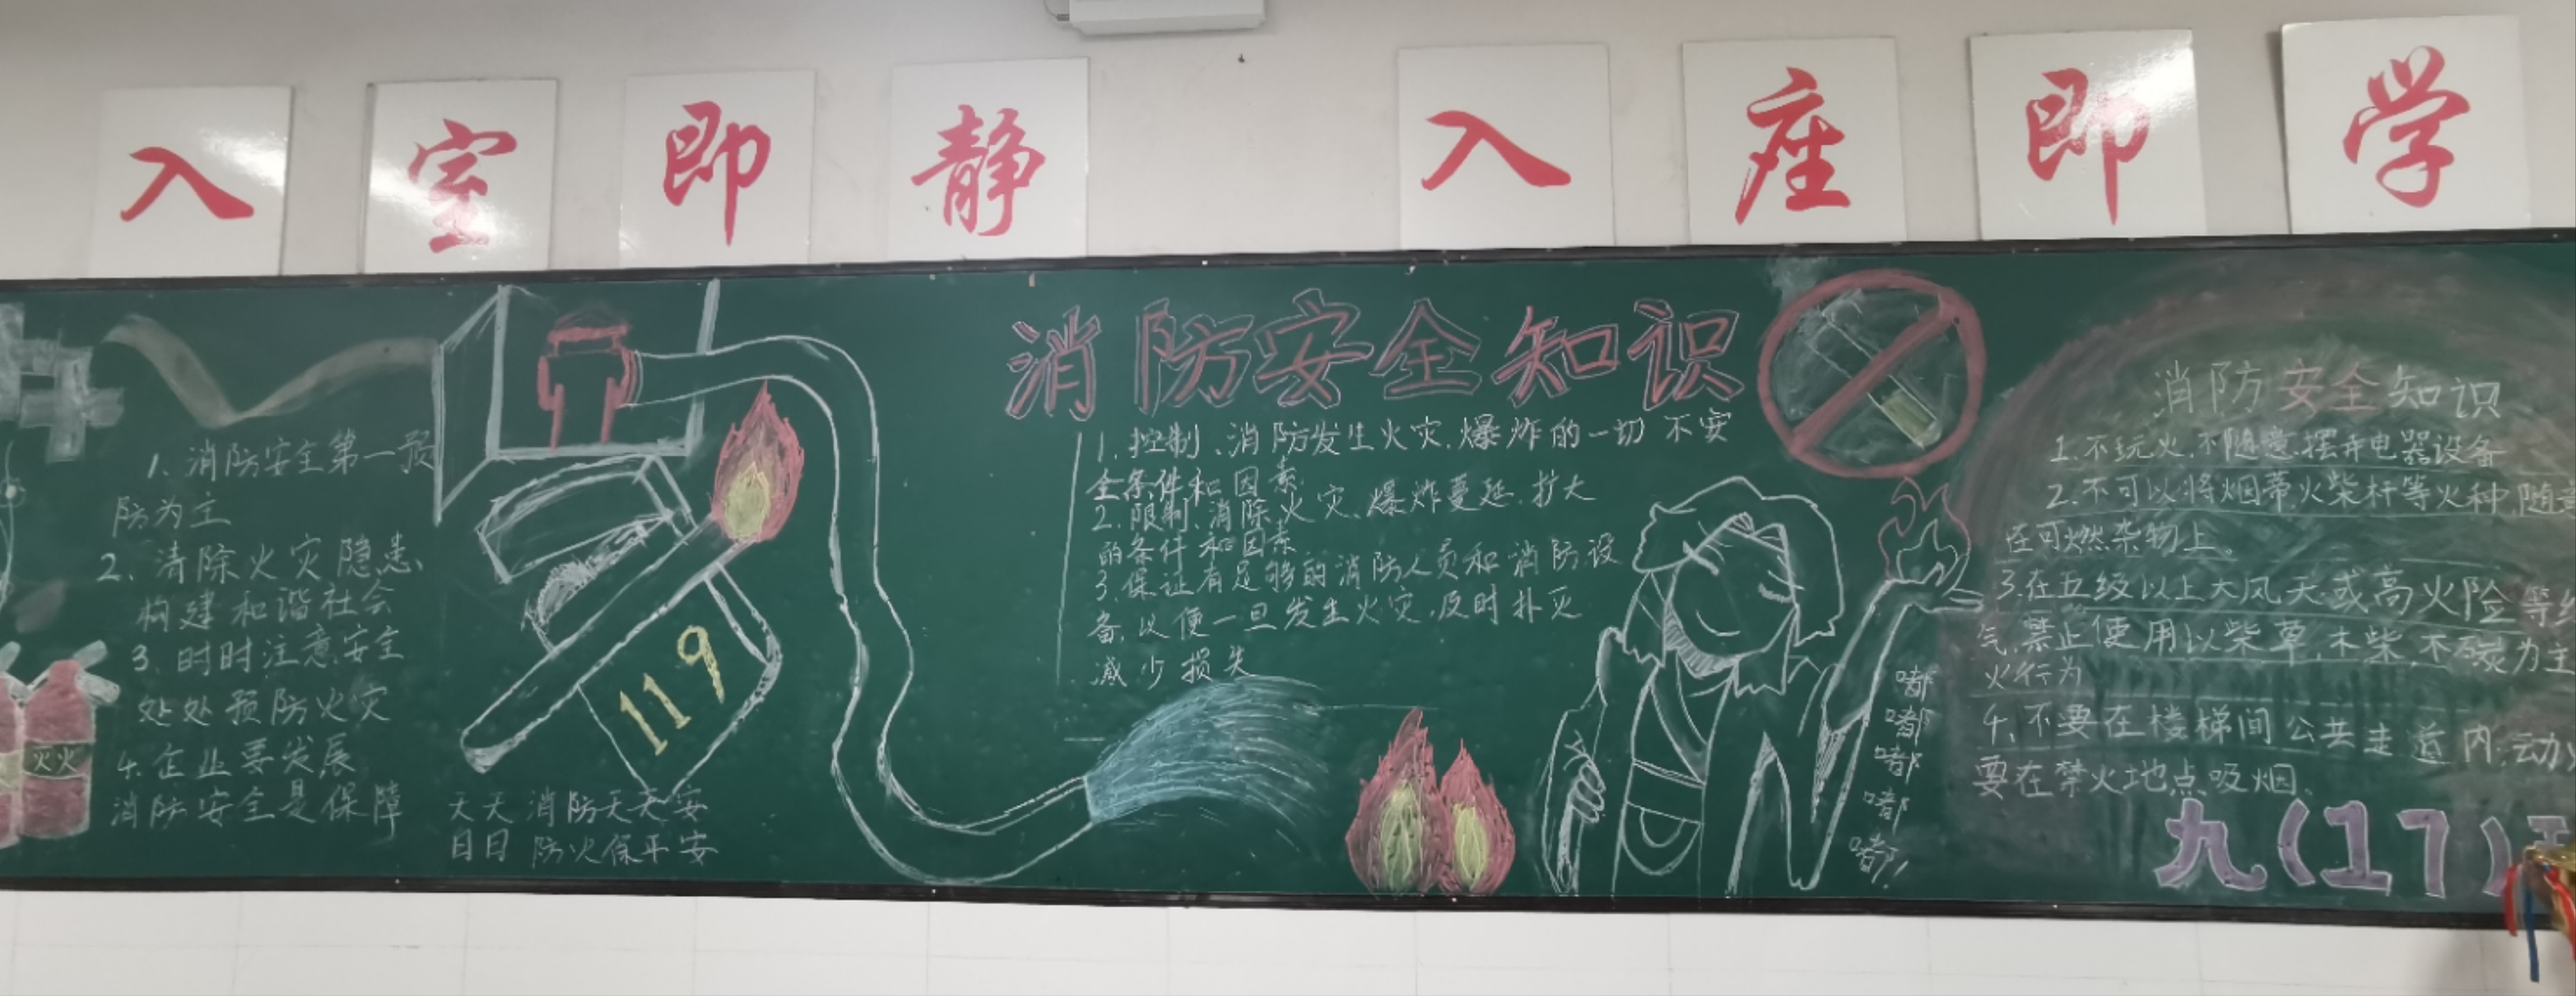 入室即静
入座即学
1、消防安全第一预
防为主
2、清除火灾隐患
构建和谐社会
3、时时注意安全
处处预防火灾
4.企业要发展
消防安全是保障
灭火
119
天天消防天天安
日日防火保平安
消防安全知识
1.控制、消防发生火灾.爆炸的一切不安
全条件和因素.
2.限制、消除火灾、爆炸蔓延.扩大
的条件和因素
3.保证有足够的消防人员和消防设
备.以便一旦发生火灾.及时扑灭
减少损失
嘟
嘟
嘟
嘟
嘟!
消防安全知识
1.不玩火.不随意摆弄电器设备
2.不可以将烟蒂火柴杆等火种随
在可燃杂物上。
3.在五级以上大风天或高火险等
气.禁止使用以柴草.木柴.不炭为主
火行为
4.不要在楼梯间公共走道内动
要在禁火地点吸烟。
九(17)